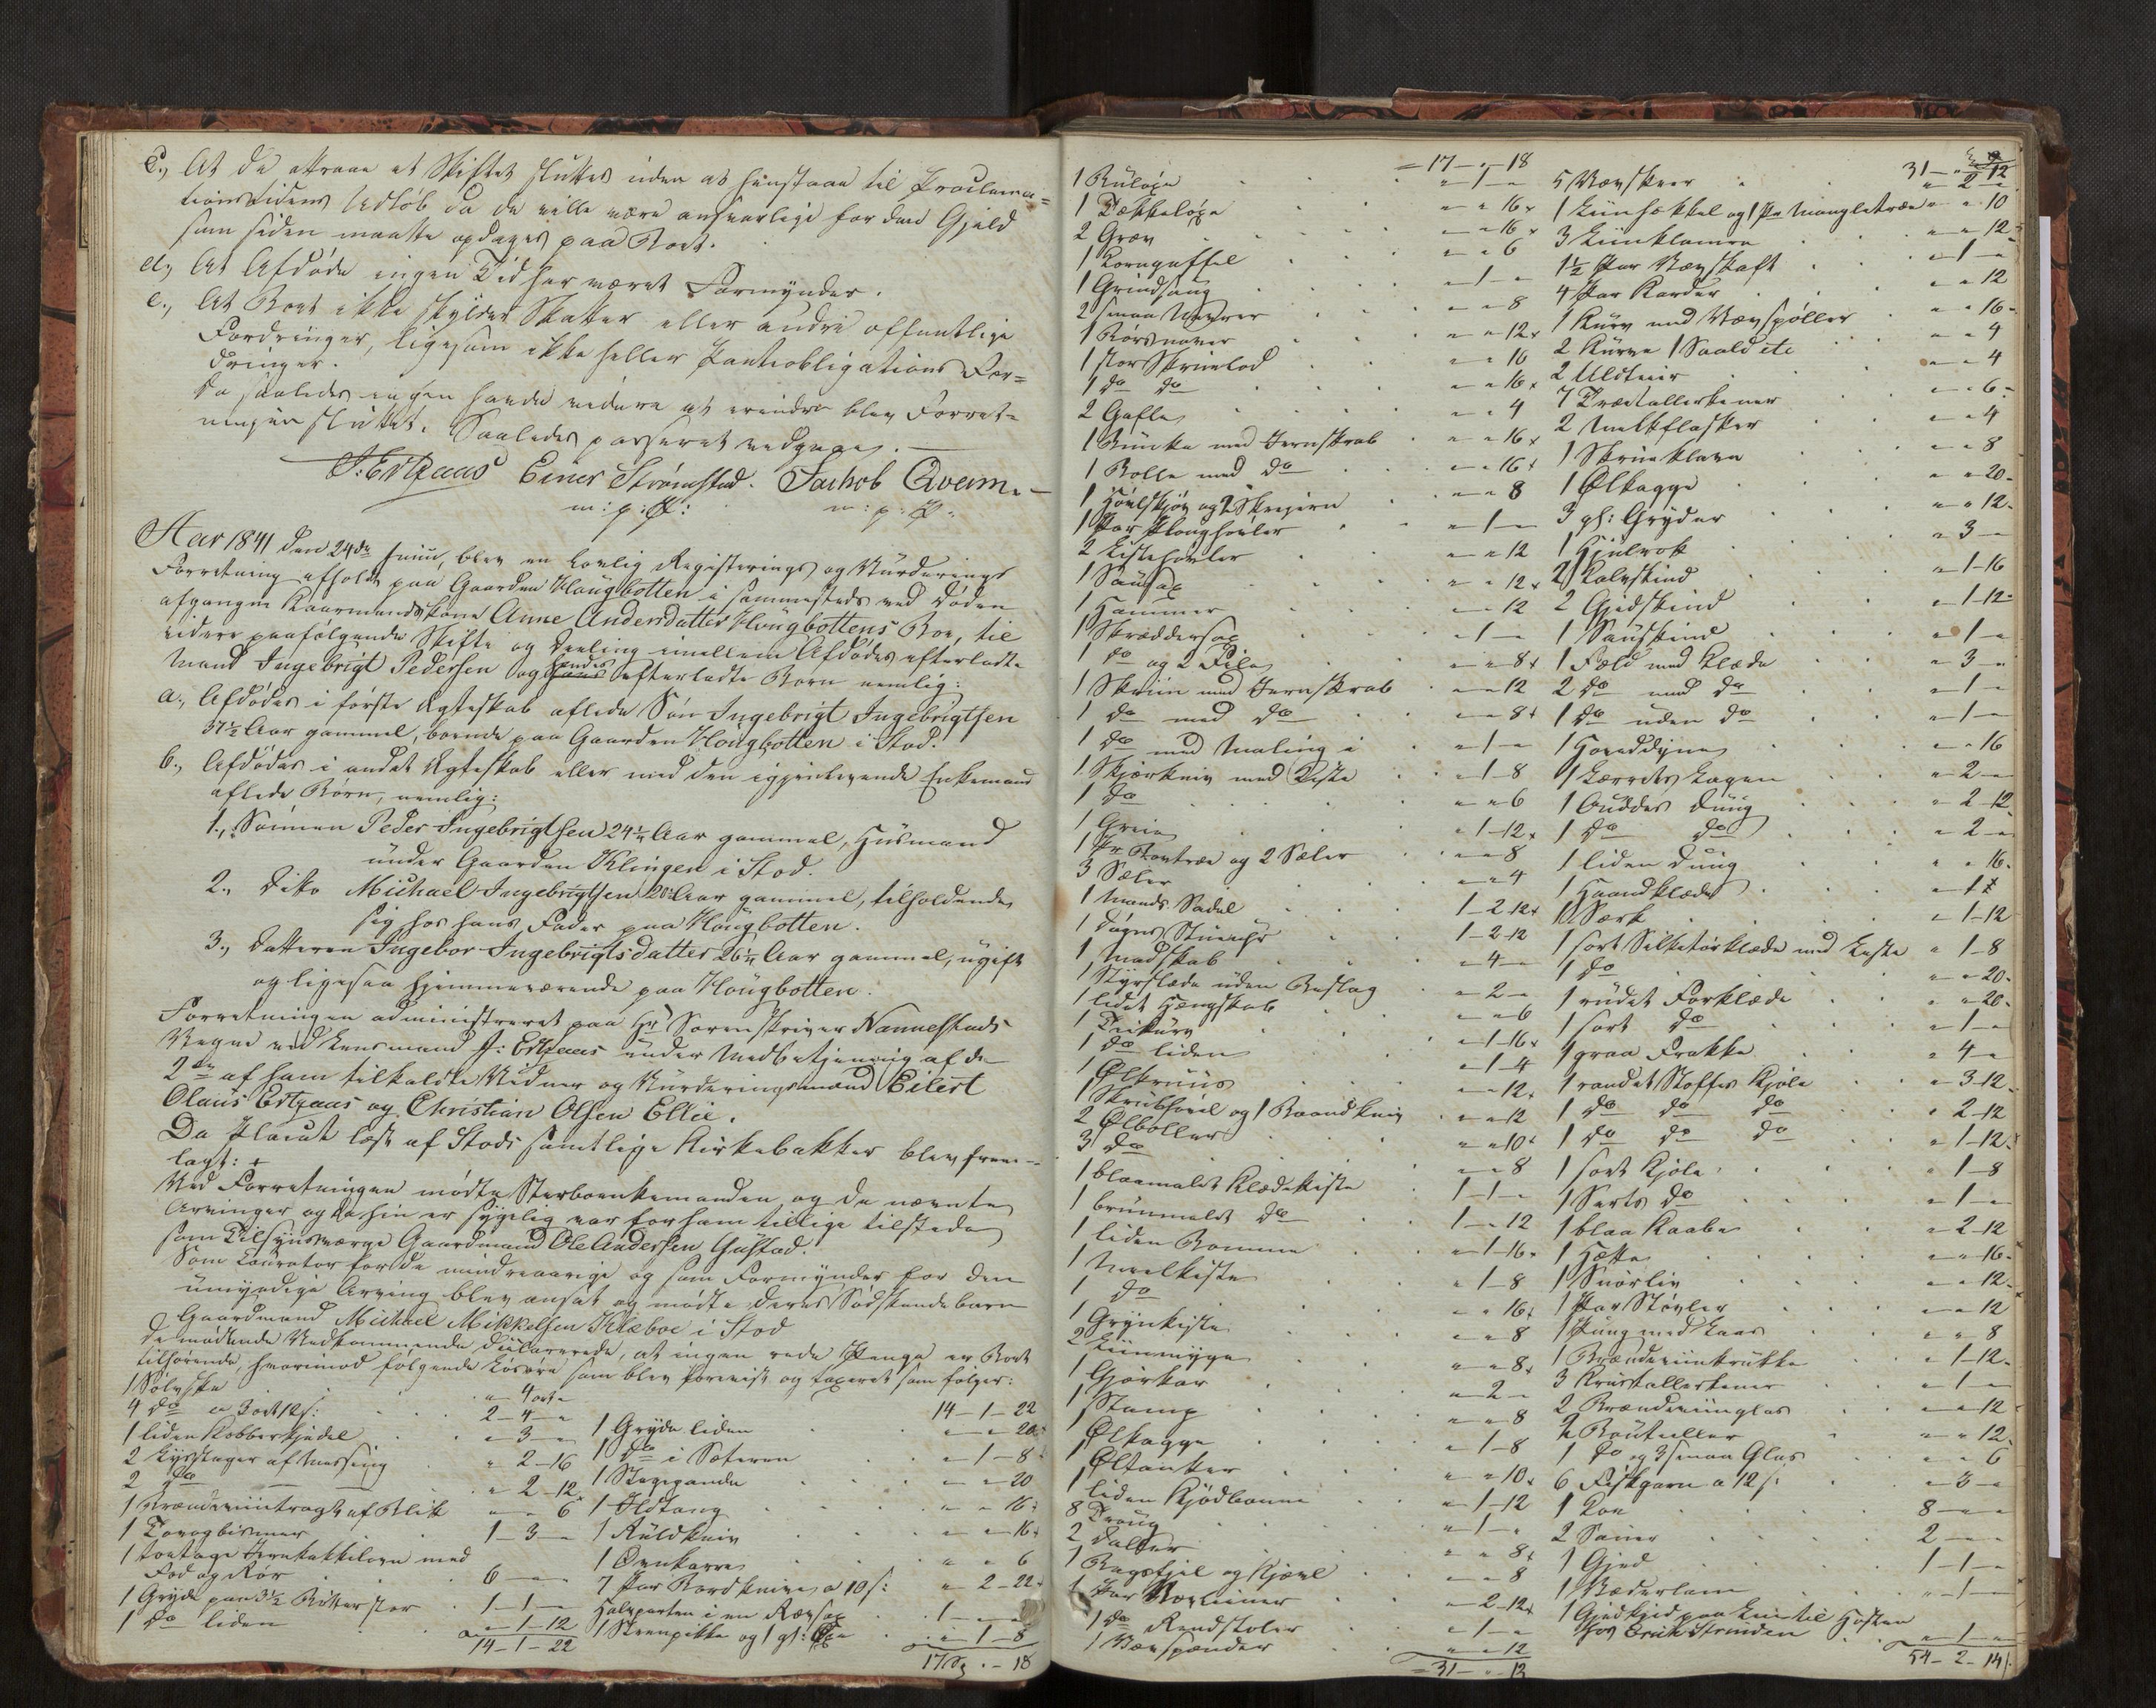 c., At de attraae at Skiftet sluttes uden at henstaae til Proclama=
tionstidens Udløb da de ville være ansvarlige for den Gjeld
som siden maatte opdages paa Boet.
d., At Afdøde ingen Tid har været Formynder.
e., At Boet ikke skylder Skatter eller andre offentlige
Fordringer, ligesom ikke heller Pantobligations For=
dringer.
Da saaledes ingen havde videre at erindre blev Forret=
ningen sluttet. Saaledes passeret vedgaaes.
J. Ertzaas Einer Strømstad. Jachob Qvam.
m: p: P: m: p: P:
Aar 1841 den 24de Junii, blev en lovlig Registerings og Vurderings
Forretning afholdt paa Gaarden Hougbotten i sammesteds ved Døden
afgangne Kaarmandskone Anne Andersdatter Hougbottens Boe, til
videre paafølgende Skifte og Deeling imellem Afdødes efterladte
Mand Ingebrigt Pedersen og hendes efterladte Børn nemlig:
a., Afdødes i første Ægteskab aflede Søn Ingebrigt Ingebrigtsen
37½ Aar gammel, boende paa Gaarden Hougbotten i Stod.
b., Afdødes i andet Ægteskab eller med den igjenlevende Enkemand
aflede Børn, nemlig:
1., Sønnen Peder Ingebrigtsen 24¼ Aar gammel, Huusmand
under Gaarden Klingen i Stod.
2., Dito Michael Ingebrigtsen 20 Aar gammel, tilholdende
sig hos hans Fader paa Hougbotten.
3., Datteren Ingebor Ingebrigtsdatter 26¼ Aar gammel, ugift
og ligesaa hjemmeværende paa Hougbotten.
Forretningen administreret paa Hr Sorenskriver Nannestads
Vegne ved Lensmand J: Ertzaas under Medbetjening af de
2de af ham tilkaldte Vidner og Vurderingsmænd Eilert
Olaus Ertzaas og Christian Olsen Ellie.
Da Placat læst af Stods samtlige Kirkebakker blev frem=
lagt: +
Ved Forretningen mødte Sterboenkemanden og de nævnte
Arvinger og da hin er sygelig var for ham tillige tilstede
som Tilsynsværge Gaardmand Ole Andersen Gustad.
Som Curator for de mindreaarige og som Formynder for den
umyndige Arving blev ansat og mødte deres Sødskendebarn
Gaardmand Michael Mikkelsen Klæboe i Stod
De mødende Vedkommende declarerede, at ingen rede Penge er Boet
tilhørende, hvorimod følgende Løsøre som blev foreviist og taxeret som følger:
1 Sølvske " 4 ort "
4 do a 3 ort 12 s: 2-4-"
1 liden Kobberkjedel "-3-"
2 Lysestager af Messing " 2-16
2 do " 2-12
1 Brændeviinstragt af Blik "-" 6
1 Tovogbismer 1-3-"
1 toetages Jernkakkelovn med
Fod og Rør 6-"-"
1 Gryde paa 3½ Bøtter stor 1-1-"
1 do liden "-1-12
14-1-22
14-1-22
1 Gryde liden "-"-20
1 do i Sæteren "-1-8
1 Stegepande "-"-20
1 Ildtang "-"-16
1 Kulekniv "-"-16
1 Ovnkarre "-"-6
7 Par Bordknive a 10 s: "-2-22
Halvparten i en Ræesax 1-"-"
1 Steenpikke og 1 gl: Øxe "-1-8
17 Sp "-18
"17-"-18
1 Buløxe "-1-"
1 Tækkeløxe "-"16
2 Græv "-"16
1 Korngaffel "-"6
1 Grindsaug "-1-"
2 smaa Navrer "-"8
1 Børsnaver "-"12
1 stor Skruelod "-"16
1 do do "-"16
2 Gafler "-"4
1 Bunke med Jernskrab "-"16
1 Bolle med do "-"16
1 Hovlskjøn og 2 Skrujern "-"8
1 Par Plonghøvler "-1-"
2 Listehøvler "-"12
1 Sausax "-"12
1 Hammer "-"12
1 Skræddersax "-1-"
1 do og 2 File "-"8
1 Skriin med Jernskrab "-"12
1 do med do "-"8
1 do med Maling i "-1-"
1 Skjærkniv med Kiste "-1-8
1 do "-"6
1 Greie "-1-12
1 Pr Bomtræe og 2 Sæler "-"8
3 Sæler "-"4
1 Mands Sadel 1-2-12
1 Døgns Stueuhr 1-2-12
1 Madskab "-4-"
1 Kjørslæde uden Beslag "-2-"
1 lidet Hængskab "-"6
1 Teikurv "-1-16
1 do liden "-1-4
1 Ølkruus "-"12
1 Skrubhøvl og 1 Baandkniv "-"12
2 Ølboller "-"10
3 do "-"8
1 blaamalet Klædekiste 1-1-"
1 bruunmalet do 1-"12
1 liden Bomme "-1-16
1 Meelkiste "-1-8
1 do "-"16
1 Grynkiste "-"8
2 Liinmyger "-"8
1 Gjørkar "-2-"
1 Stamp "-"8
1 Ølkagge "-1-8
1 Øltanker "-"10
1 liden Kjødtønne "-1-12
8 Traug "-1-"
2 Daller "-"8
1 Bagefjel og Kjævl "-"8
1 Par Vævliiner "-2-12
1 do Rendstoler "-1-"
1 Vævspænder "-"12
"31-"-12
31-"-12
5 Vævskeer "-2-"
1 Liinhækkel og 1 Pr Mangletræe "-"10
3 Liinklamrer "-"12
1½ Par Vævskaft "-1-"
4 Par Karder "-"12
1 Kurv med Vævspøller "-"16
2 Kurve 1 Saald etc "-"4
2 Uldteiner "-"4
7 Trætallerkener "-"6
2 Melkflasker "-"4
1 Skrueklave "-"8
1 Ølkagge "-"20
3 gl: Gryder "-"12
1 Hjulrok "-3-"
2 Kalvskind "-1-16
2 Gjedskind "-1-12
1 Sauskind "-1-"
1 Fæld med Klæde "-3-"
2 do med do "-1-"
1 do uden do "-1-"
1 Hoveddyne "-"16
1 Lærreds Lagen "-2-"
1 Ouddes Duug "-2-12
1 do do "-2-"
1 liden Duug "-"16
1 Haandklæde "-1
1 Særk "-1-12
1 sort Silketørklæde med Kaste "-1-8
1 do "-"20
1 rudet Forklæde "-"20
1 sort do "-1-"
1 graa Frakke "-4-"
1 randet Stoffes Kjole "-3-12
1 do do do "-2-12
1 do do do "-1-12
1 sort Kjole "-1-8
1 Serts do "-1-"
1 blaa Kaabe "-2-12
1 Hætte "-"16
1 Snørliv "-"12
1 Par Støvler "-"12
1 Pung med Laas "-"8
1 Brændeviinskrukke "-1-12
3 Krustallerkener "-1-"
2 Brændeviinglas "-"12
2 Bouteiller "-"12
1 do og 3 smaa Glas "-"6
6 Fiskgarn a 12 s: "-3-"
1 Koe 8-"-"
2 Sauer 2-"-"
1 Gjed 1-1-"
1 Væderlam "-1-"
1 Gjedkjid paa Leie til Høsten
hos Erich Strinden "-1-"
54-2-14